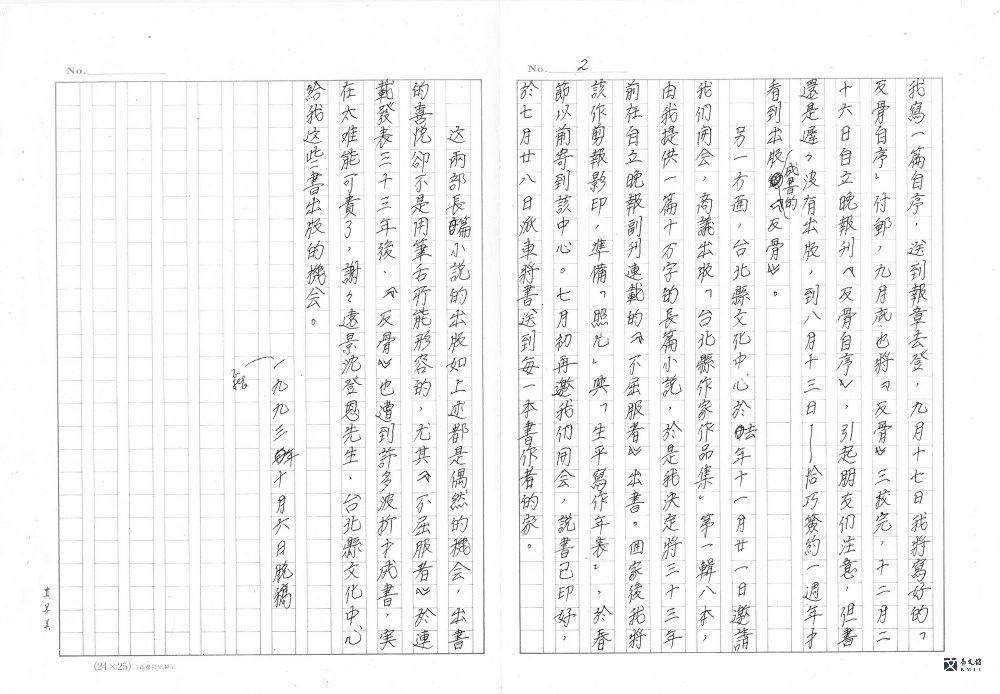 No. 2
我寫一篇自序，送到報章去登，九月十七日我將寫好的「
反骨自序」付郵，九月底也將《反骨》三校完，十二月二
十六日自立晚報刊《反骨自序》，引起朋友们注意，但書
還是遲々沒有出版，到八月十三日——恰巧簽約一週年才
看到出版成書的《反骨》。
另一方面，台北縣文化中心於去年十一月廿一日邀請
我们開会，商議出版「台北縣作家作品集」第一輯八本，
由我提供一篇十万字的長篇小說，於是我決定將三十三年
前在自立晚報副刊連載的《不屈服者》出書。回家後我將
該作剪報影印，準備「照片」與「生平寫作年表」，於春
節以前寄到該中心。七月初再邀我们開会，說書已印好，
於七月廿八日派車將書送到每一本書作者的家。
No.
这兩部長篇小說的出版如上述都是偶然的機会，出書
的喜悅卻不是用筆舌所能形容的，尤其《不屈服者》於連
載發表三十三年後，《反骨》也遭到許多波折才成書，実
在太难能可貴了，謝々遠景沈登恩先生、台北縣文化中心
給我这些書出版的機会。
一九九三年十月六日脫稿
(24×25)